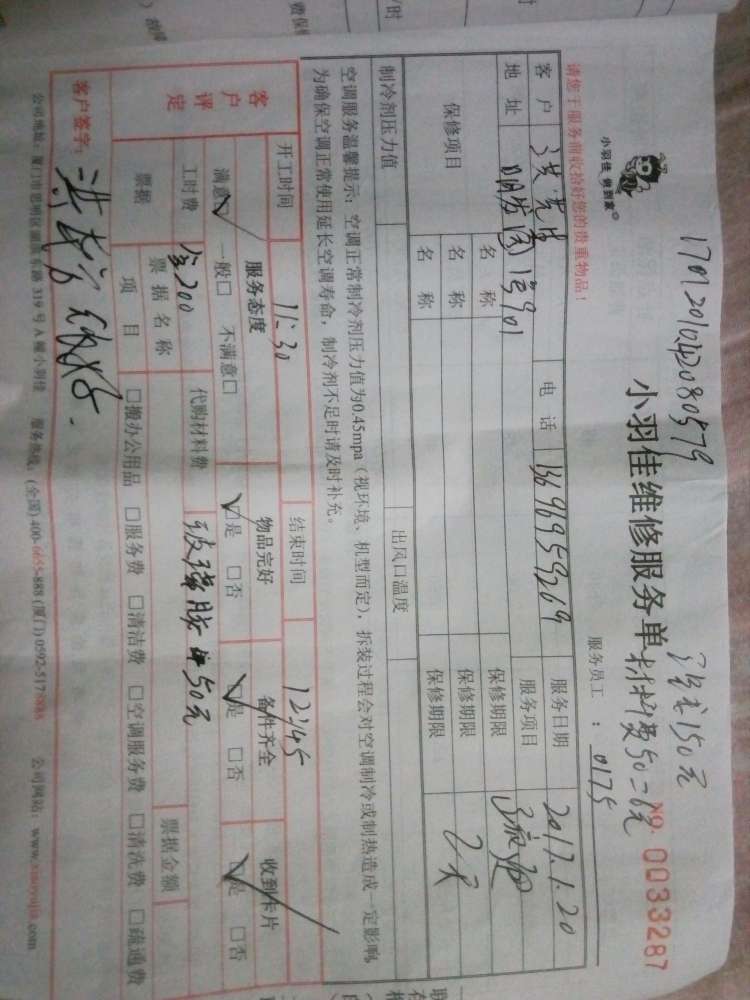 1701201042080579
小羽佳 做到家®
小羽佳维修服务单
150元
材料费50=6元
服务员工:0175
NO. 0033287
请您于服务前收拾好您的贵重物品!
客户 洪先生 电话 13696959269 服务日期 2017.1.20
地址 901 服务项目
保修项目 名称 保修期限
名称 保修期限
名称 保修期限
制冷剂压力值 出风口温度
空调服务温馨提示:空调正常制冷剂压力值为0.45mpa(视环境、机型而定),拆装过程会对空调制冷或制热造成一定影响,
为确保空调正常使用延长空调寿命,制冷剂不足时请及时补充。
开工时间 11:30 结束时间 12:45
客户评定 服务态度 物品完好 备件齐全 收到卡片
满意☑ 一般□ 不满意□ ☑是 □否 ☑是 □否 ☑是 □否
工时费 200 代购材料费 玻璃胶 50元
票据 票据名称 票据金额
项目 □搬办公用品 □服务费 □清洁费 □空调服务费 □清洗费 □疏通费
客户签字:
公司地址:厦门市思明区 东路319号A幢小羽佳 服务热线:(全国)400-6655-888 (厦门)0592-517 888 公司网站:www.xiaoyujia.com